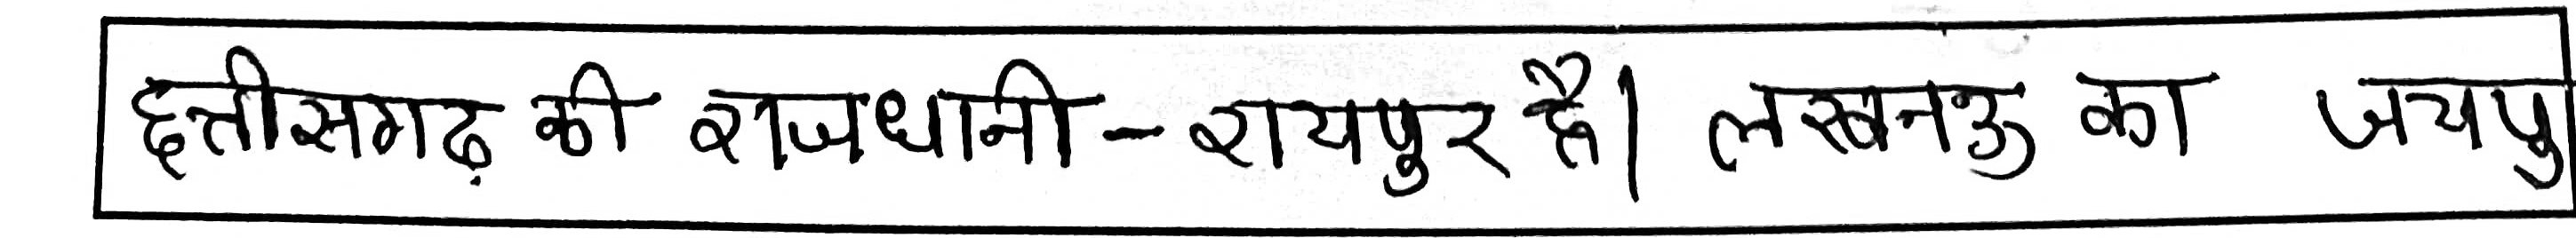 छत्तीसगढ़ की राजधानी - रायपुर है। लखनऊ का जयपु